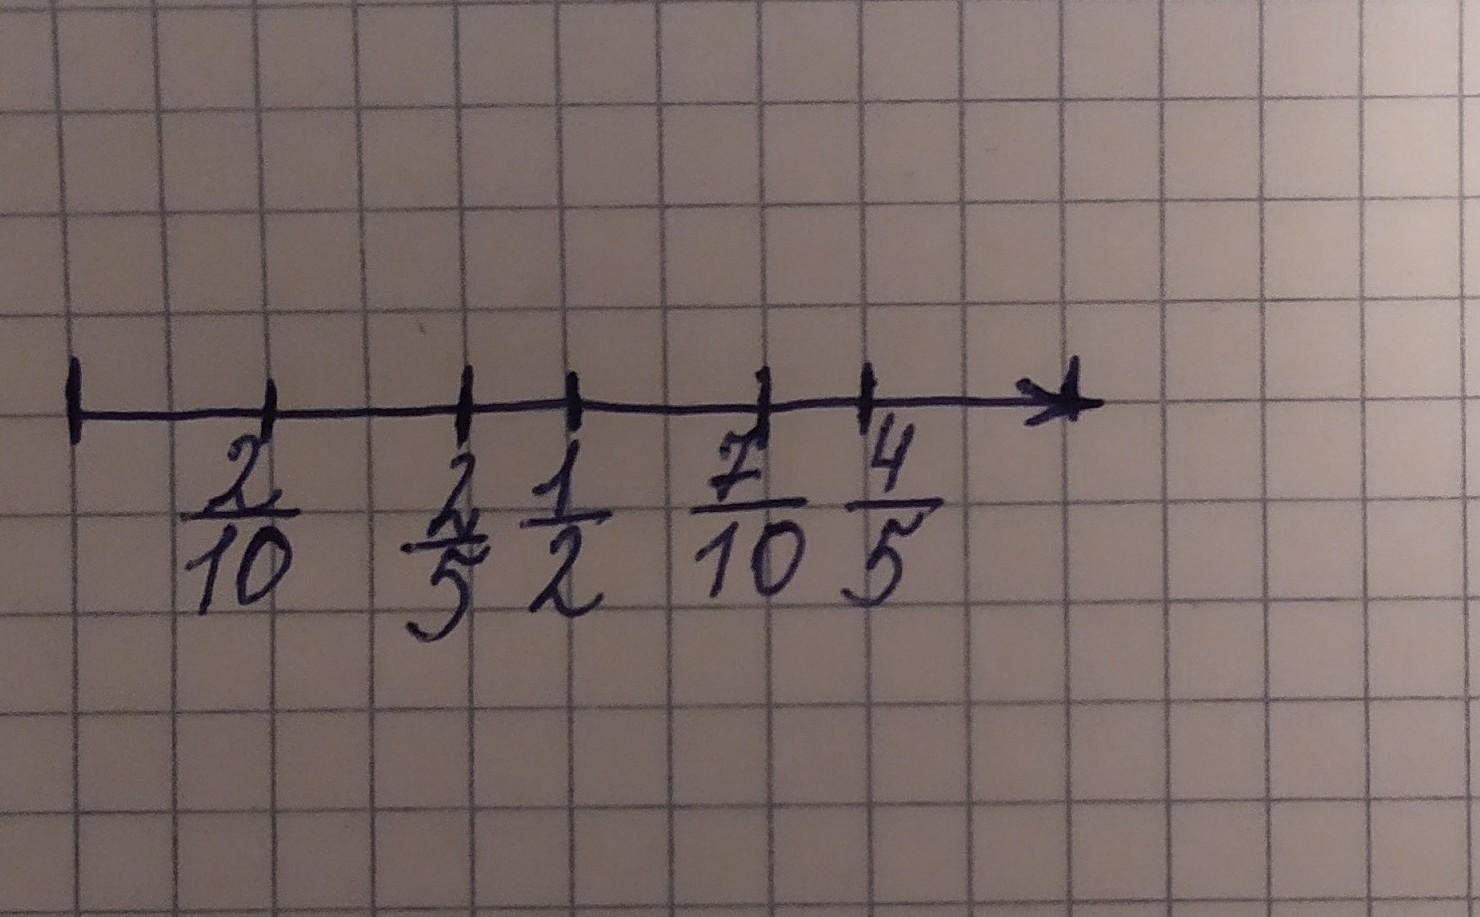 2/10 2/5 1/2 7/10 4/5